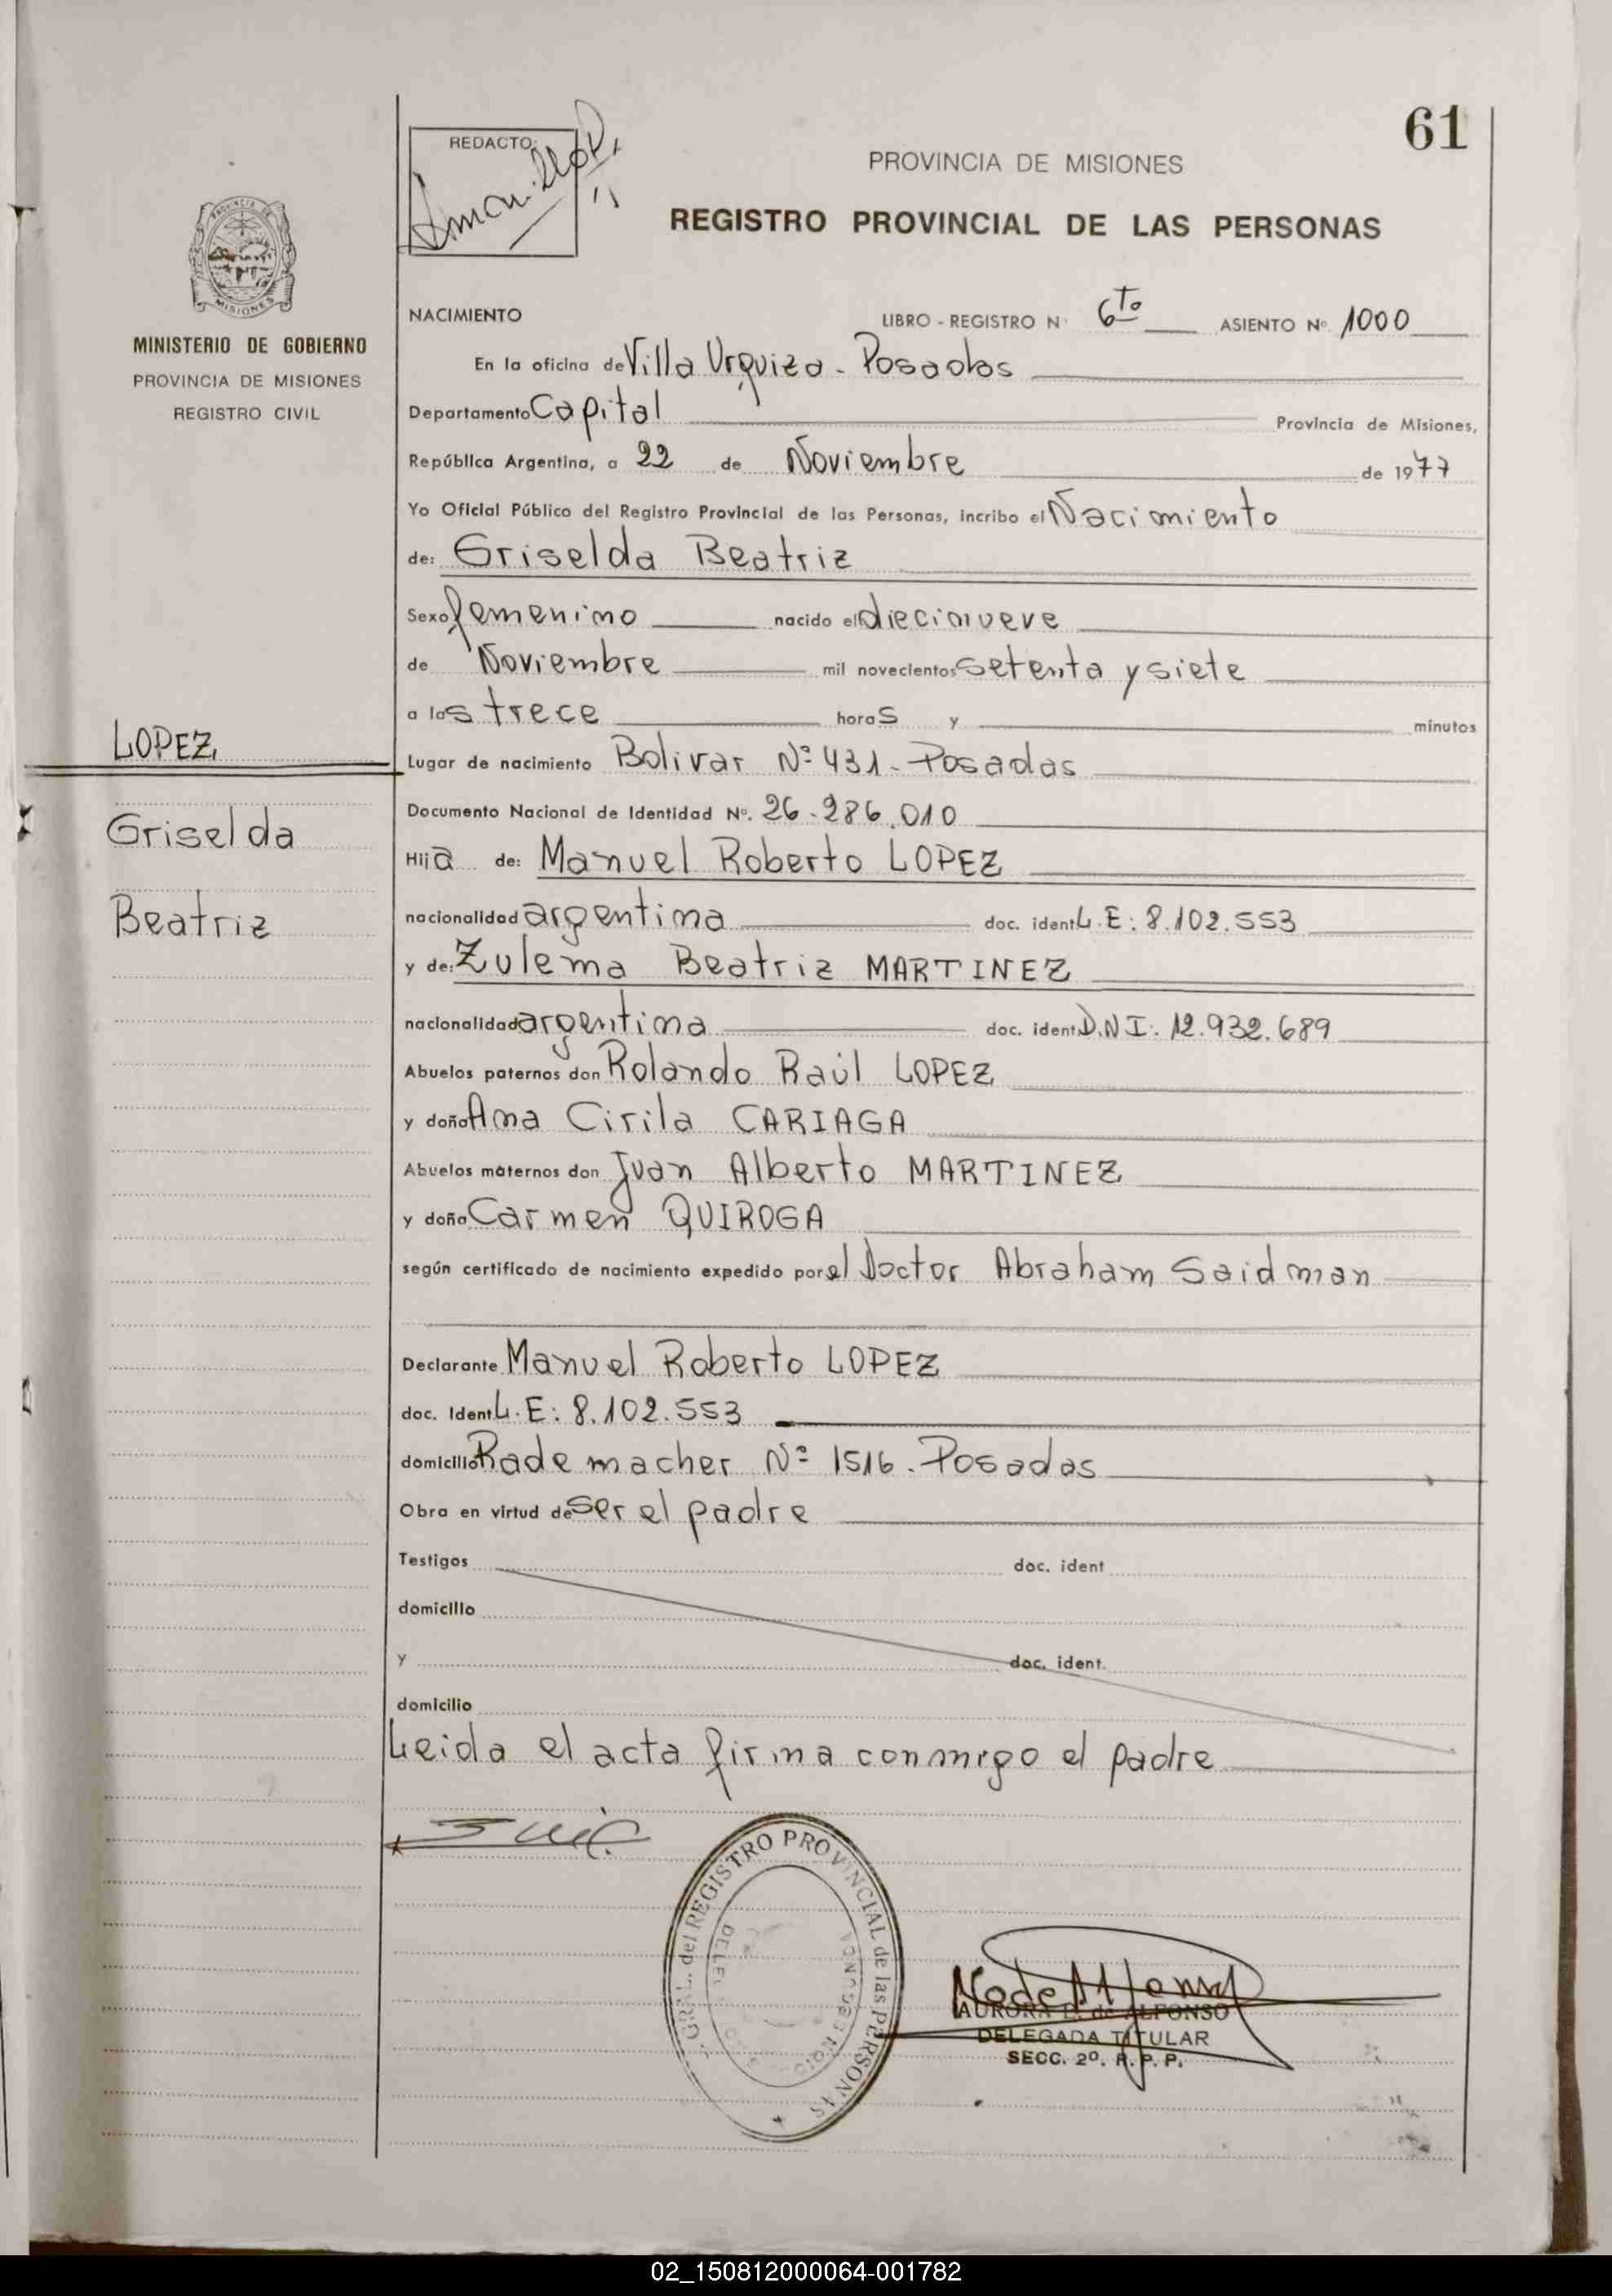 61
REDACTO:
PROVINCIA DE MISIONES
REGISTRO PROVINCIAL DE LAS PERSONAS
PROVINCIA DE
MISIONES
MINISTERIO DE GOBIERNO
PROVINCIA DE MISIONES
REGISTRO CIVIL
NACIMIENTO LIBRO - REGISTRO Nº 6to ASIENTO Nº 1000
En la oficina de Villa Urquiza - Posadas
Departamento Capital Provincia de Misiones,
República Argentina, a 22 de Noviembre de 1977
Yo Oficial Público del Registro Provincial de las Personas, incribo el Nacimiento
de: Griselda Beatriz
Sexo femenino nacido el diecinueve
de Noviembre mil novecientos setenta y siete
a las trece horas y minutos
LOPEZ
Griselda
Beatriz
Lugar de nacimiento Bolivar Nº 431 - Posadas
Documento Nacional de Identidad Nº. 26.286.010
Hija de: Manuel Roberto LOPEZ
nacionalidad argentina doc. ident L.E: 8.102.553
y de: Zulema Beatriz MARTINEZ
nacionalidad argentina doc. ident D.N.I: 12.932.689
Abuelos paternos don Rolando Raúl LOPEZ
y doña Ana Cirila CARIAGA
Abuelos maternos don Juan Alberto MARTINEZ
y doña Carmen QUIROGA
según certificado de nacimiento expedido por el Doctor Abraham Saidman
Declarante Manuel Roberto LOPEZ
doc. Ident L.E: 8.102.553
domicilio Rademacher Nº 1516. Posadas
Obra en virtud de ser el padre
Testigos doc. ident
domicilio
y doc. ident.
domicilio
Leida el acta firma conmigo el padre
GRAL. del REGISTRO PROVINCIAL de las PERSONAS
AURORA de ALFONSO
DELEGADA TITULAR
SECC. 2º. R. P. P.
02_150812000064-001782